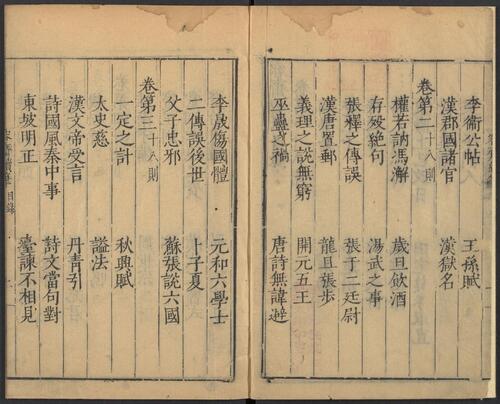 李衛公帖 王孫賦
漢郡國諸官 漢獄名
卷第二十八則
權若訥馮澥 歲旦飲酒
存歿絕句 湯武之事
張釋之傳誤 張于二廷尉
漢唐置郵 龍且張步
義理之說無窮 開元五王
巫蠱之禍 唐詩無諱避
李晟傷國體 元和六學士
二傳誤後世 卜子夏
父子忠邪 蘇張說六國
卷第三十八則
一定之計 秋興賦
太史慈 謚法
漢文帝受言 丹青引
詩國風秦中事 詩文當句對
東坡明正 臺諫不相見
目錄